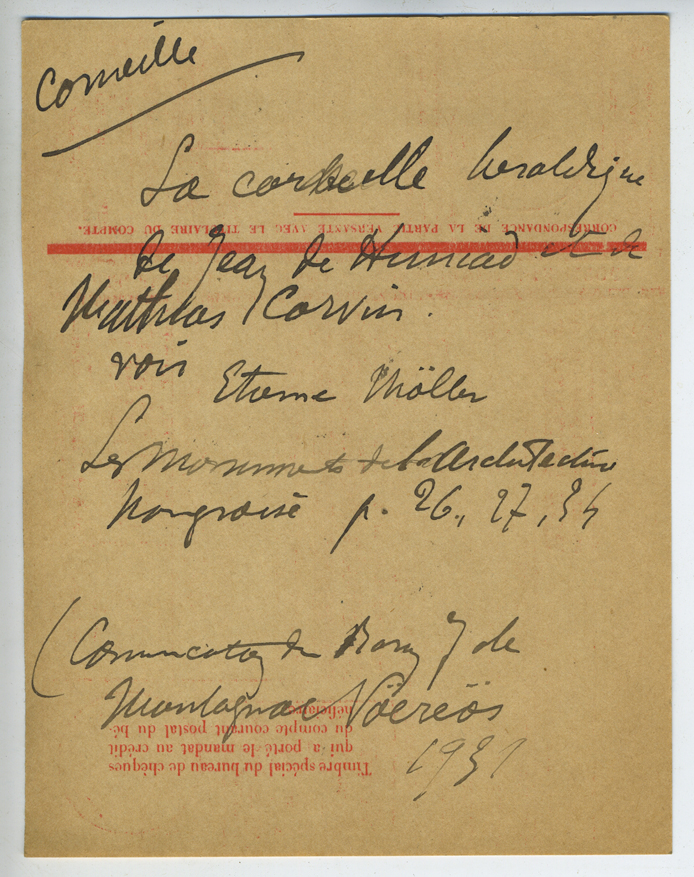 Corneille
La corbeille heraldique
CORRESPONDANCE DE LA PARTIE VERSANTE AVEC LE TITULAIRE DU COMPTE.
de Jean de Huniad et de
Mathias Corvin.
voir
Etienne Möller
Les Monuments de l'Architecture
hongroise p. 26, 27, 34
(Comunication du
Montagnac Vöereös
1931
Timbre spécial du bureau de chèques
qui a porté le mandat au crédit
du compte courant postal du bé-
néficiaire.